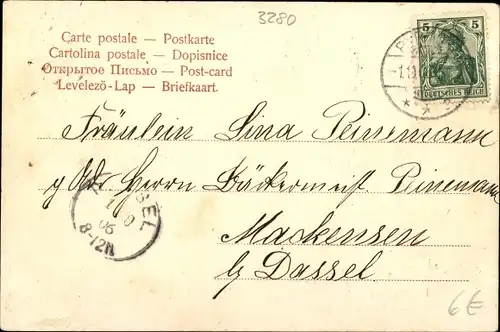 3280
Carte postale — Postkarte
Cartolina postale — Dopisnice
Открытое Письмо — Post-card
Levelező-Lap — Briefkaart.
5 5
DEUTSCHES REICH
Fräulein Lina Peinemann
Herrn Bäckermeist. Peinemann
Mackensen
b/ Dassel.
SEL
1 10
05
8-12N
6€